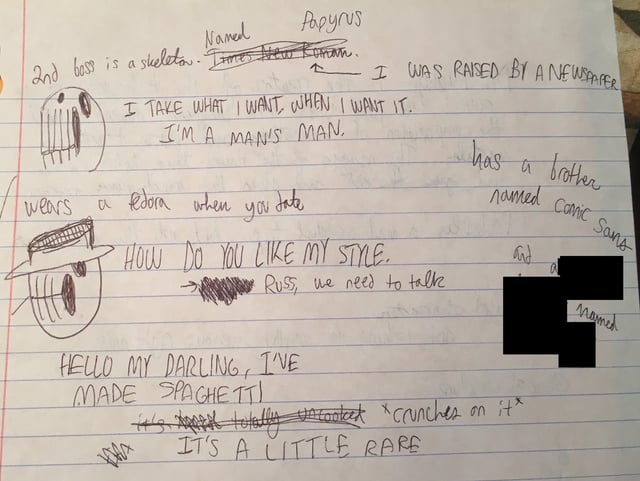 Named Papyrus
2nd boss is a skeleton. Times New Roman.
I WAS RAISED BY A NEWSPAPER
I TAKE WHAT I WANT, WHEN I WANT IT.
I'M A MAN'S MAN.
has a brother
named Comic Sans
and a
named
wears a fedora when you date
HOW DO YOU LIKE MY STYLE.
Russ, we need to talk
HELLO MY DARLING, I'VE
MADE SPAGHETTI
it's totally uncooked *crunches on it*
IT'S A LITTLE RARE